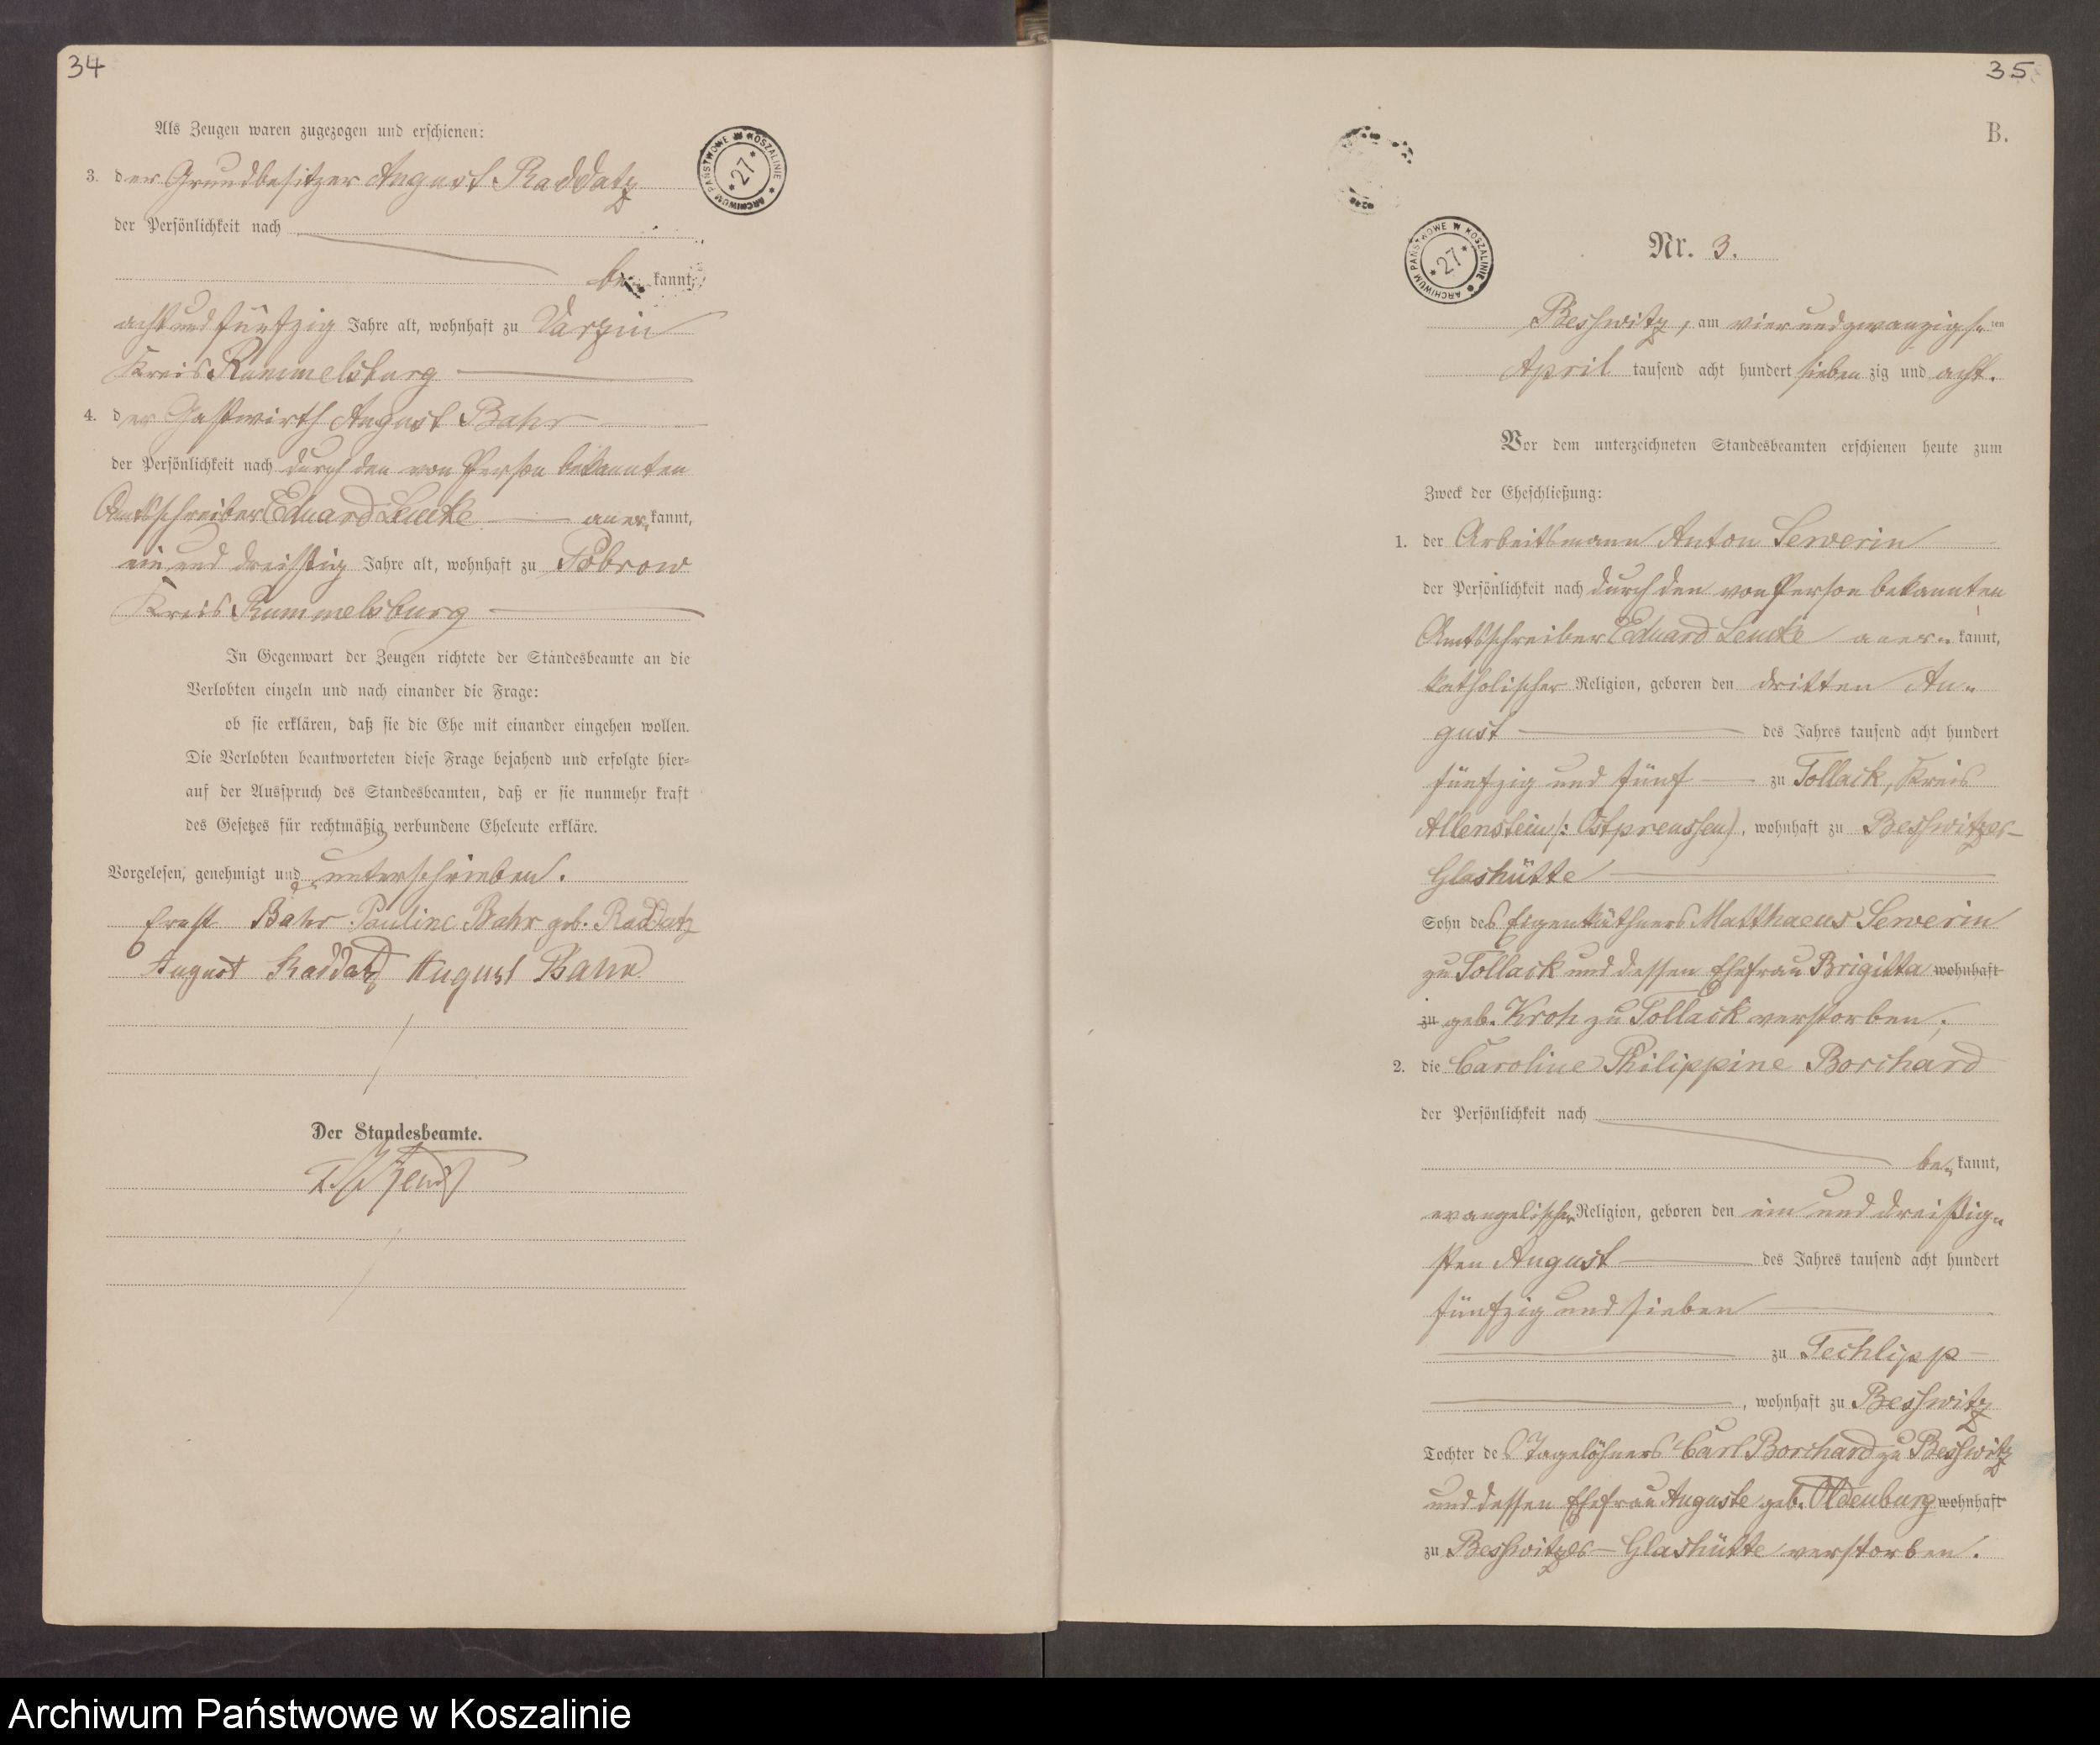 34
Als Zeugen waren zugezogen und erschienen:
3. der Grundbesitzer August Raddatz
der Persönlichkeit nach
be kannt,
acht und fünfzig Jahre alt, wohnhaft zu Varzin
Kreis Rummelsburg
4. der Gastwirth August Bahr
der Persönlichkeit nach durch den von Person bekannten
Amtsschreiber Eduard Lemke aner„kannt,
ein und dreißig Jahre alt, wohnhaft zu Pobrow
Kreis Rummelsburg
In Gegenwart der Zeugen richtete der Standesbeamte an die
Verlobten einzeln und nach einander die Frage:
ob sie erklären, daß sie die Ehe mit einander eingehen wollen.
Die Verlobten beantworteten diese Frage bejahend und erfolgte hier=
auf der Ausspruch des Standesbeamten, daß er sie nunmehr kraft
des Gesetzes für rechtmäßig verbundene Eheleute erkläre.
Vorgelesen, genehmigt und unterschrieben.
Ernst Bahr Pauline Bahr geb. Raddatz
August Raddatz August Bahr
Der Standesbeamte.
ARCHIWUM PAŃSTWOWE W KOSZALINIE
* 27 *
35
B.
ARCHIWUM PAŃSTWOWE W KOSZALINIE
* 27 *
Nr. 3.
Beßwitz, am vierundzwanzigsten
April tausend acht hundert siebenzig und acht.
Vor dem unterzeichneten Standesbeamten erschienen heute zum
Zweck der Eheschließung:
1. der Arbeitsmann Anton Sewerin
der Persönlichkeit nach durch den von Person bekannten
Amtsschreiber Eduard Lemke aner„kannt,
katholischer Religion, geboren den dritten Au„
gust des Jahres tausend acht hundert
fünfzig und fünf zu Tollack, Kreis
Allenstein (: Ostpreussen), wohnhaft zu Beßwitzer-
Glashütte
Sohn des Eigenkäthners Matthaeus Sewerin
zu Tollack und dessen Ehefrau Brigitta wohnhaft
zu geb. Kroh zu Tollack verstorben;
2. die Caroline Philippine Borchard
der Persönlichkeit nach
be„kannt,
evangelischer Religion, geboren den ein und dreißig„
sten August des Jahres tausend acht hundert
fünfzig und sieben
zu Techlipp
, wohnhaft zu Beßwitz
Tochter des Tagelöhners Carl Borchard zu Beßwitz
und dessen Ehefrau Auguste geb. Oldenburg wohnhaft
zu Beßwitzer-Glashütte verstorben.
Archiwum Państwowe w Koszalinie